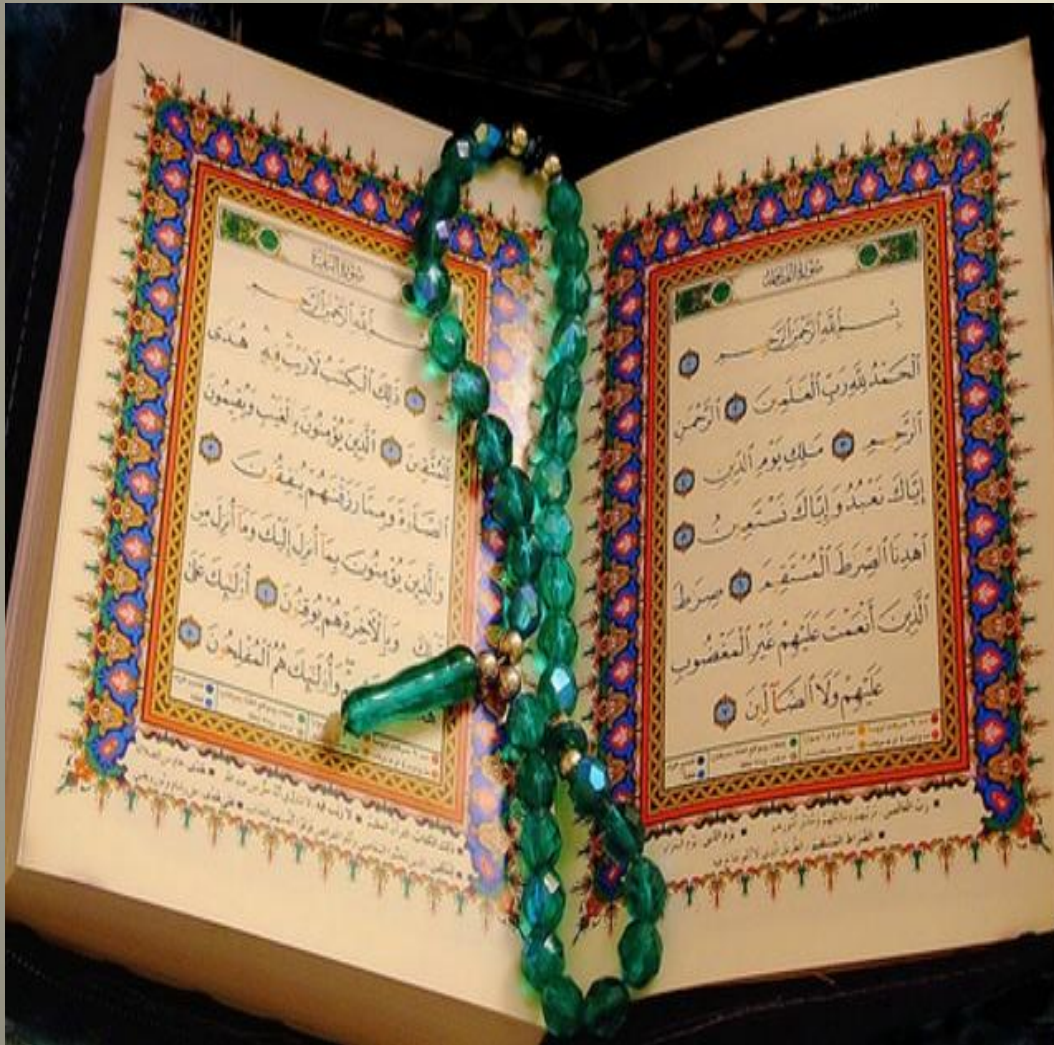 سورة الفاتحة
بِسْمِ اللَّهِ الرَّحْمَٰنِ الرَّحِيمِ ١
الْحَمْدُ لِلَّهِ رَبِّ الْعَالَمِينَ ٢ الرَّحْمَٰنِ
الرَّحِيمِ ٣ مَالِكِ يَوْمِ الدِّينِ ٤
إِيَّاكَ نَعْبُدُ وَإِيَّاكَ نَسْتَعِينُ ٥
اهْدِنَا الصِّرَاطَ الْمُسْتَقِيمَ ٦ صِرَاطَ
الَّذِينَ أَنْعَمْتَ عَلَيْهِمْ غَيْرِ الْمَغْضُوبِ
عَلَيْهِمْ وَلَا الضَّالِّينَ ٧
سورة البقرة
بِسْمِ اللَّهِ الرَّحْمَٰنِ الرَّحِيمِ
ذَٰلِكَ الْكِتَابُ لَا رَيْبَ فِيهِ هُدًى
لِلْمُتَّقِينَ ٢ الَّذِينَ يُؤْمِنُونَ بِالْغَيْبِ وَيُقِيمُونَ
الصَّلَاةَ وَمِمَّا رَزَقْنَاهُمْ يُنْفِقُونَ ٣
وَالَّذِينَ يُؤْمِنُونَ بِمَا أُنْزِلَ إِلَيْكَ وَمَا أُنْزِلَ مِنْ
قَبْلِكَ وَبِالْآخِرَةِ هُمْ يُوقِنُونَ ٤ أُولَٰئِكَ عَلَىٰ
وَأُولَٰئِكَ هُمُ الْمُفْلِحُونَ ٥